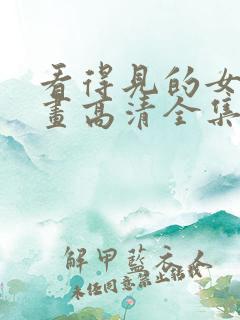 看得見的女
畫高清全集
解甲藍衣人
未经同意禁止转载